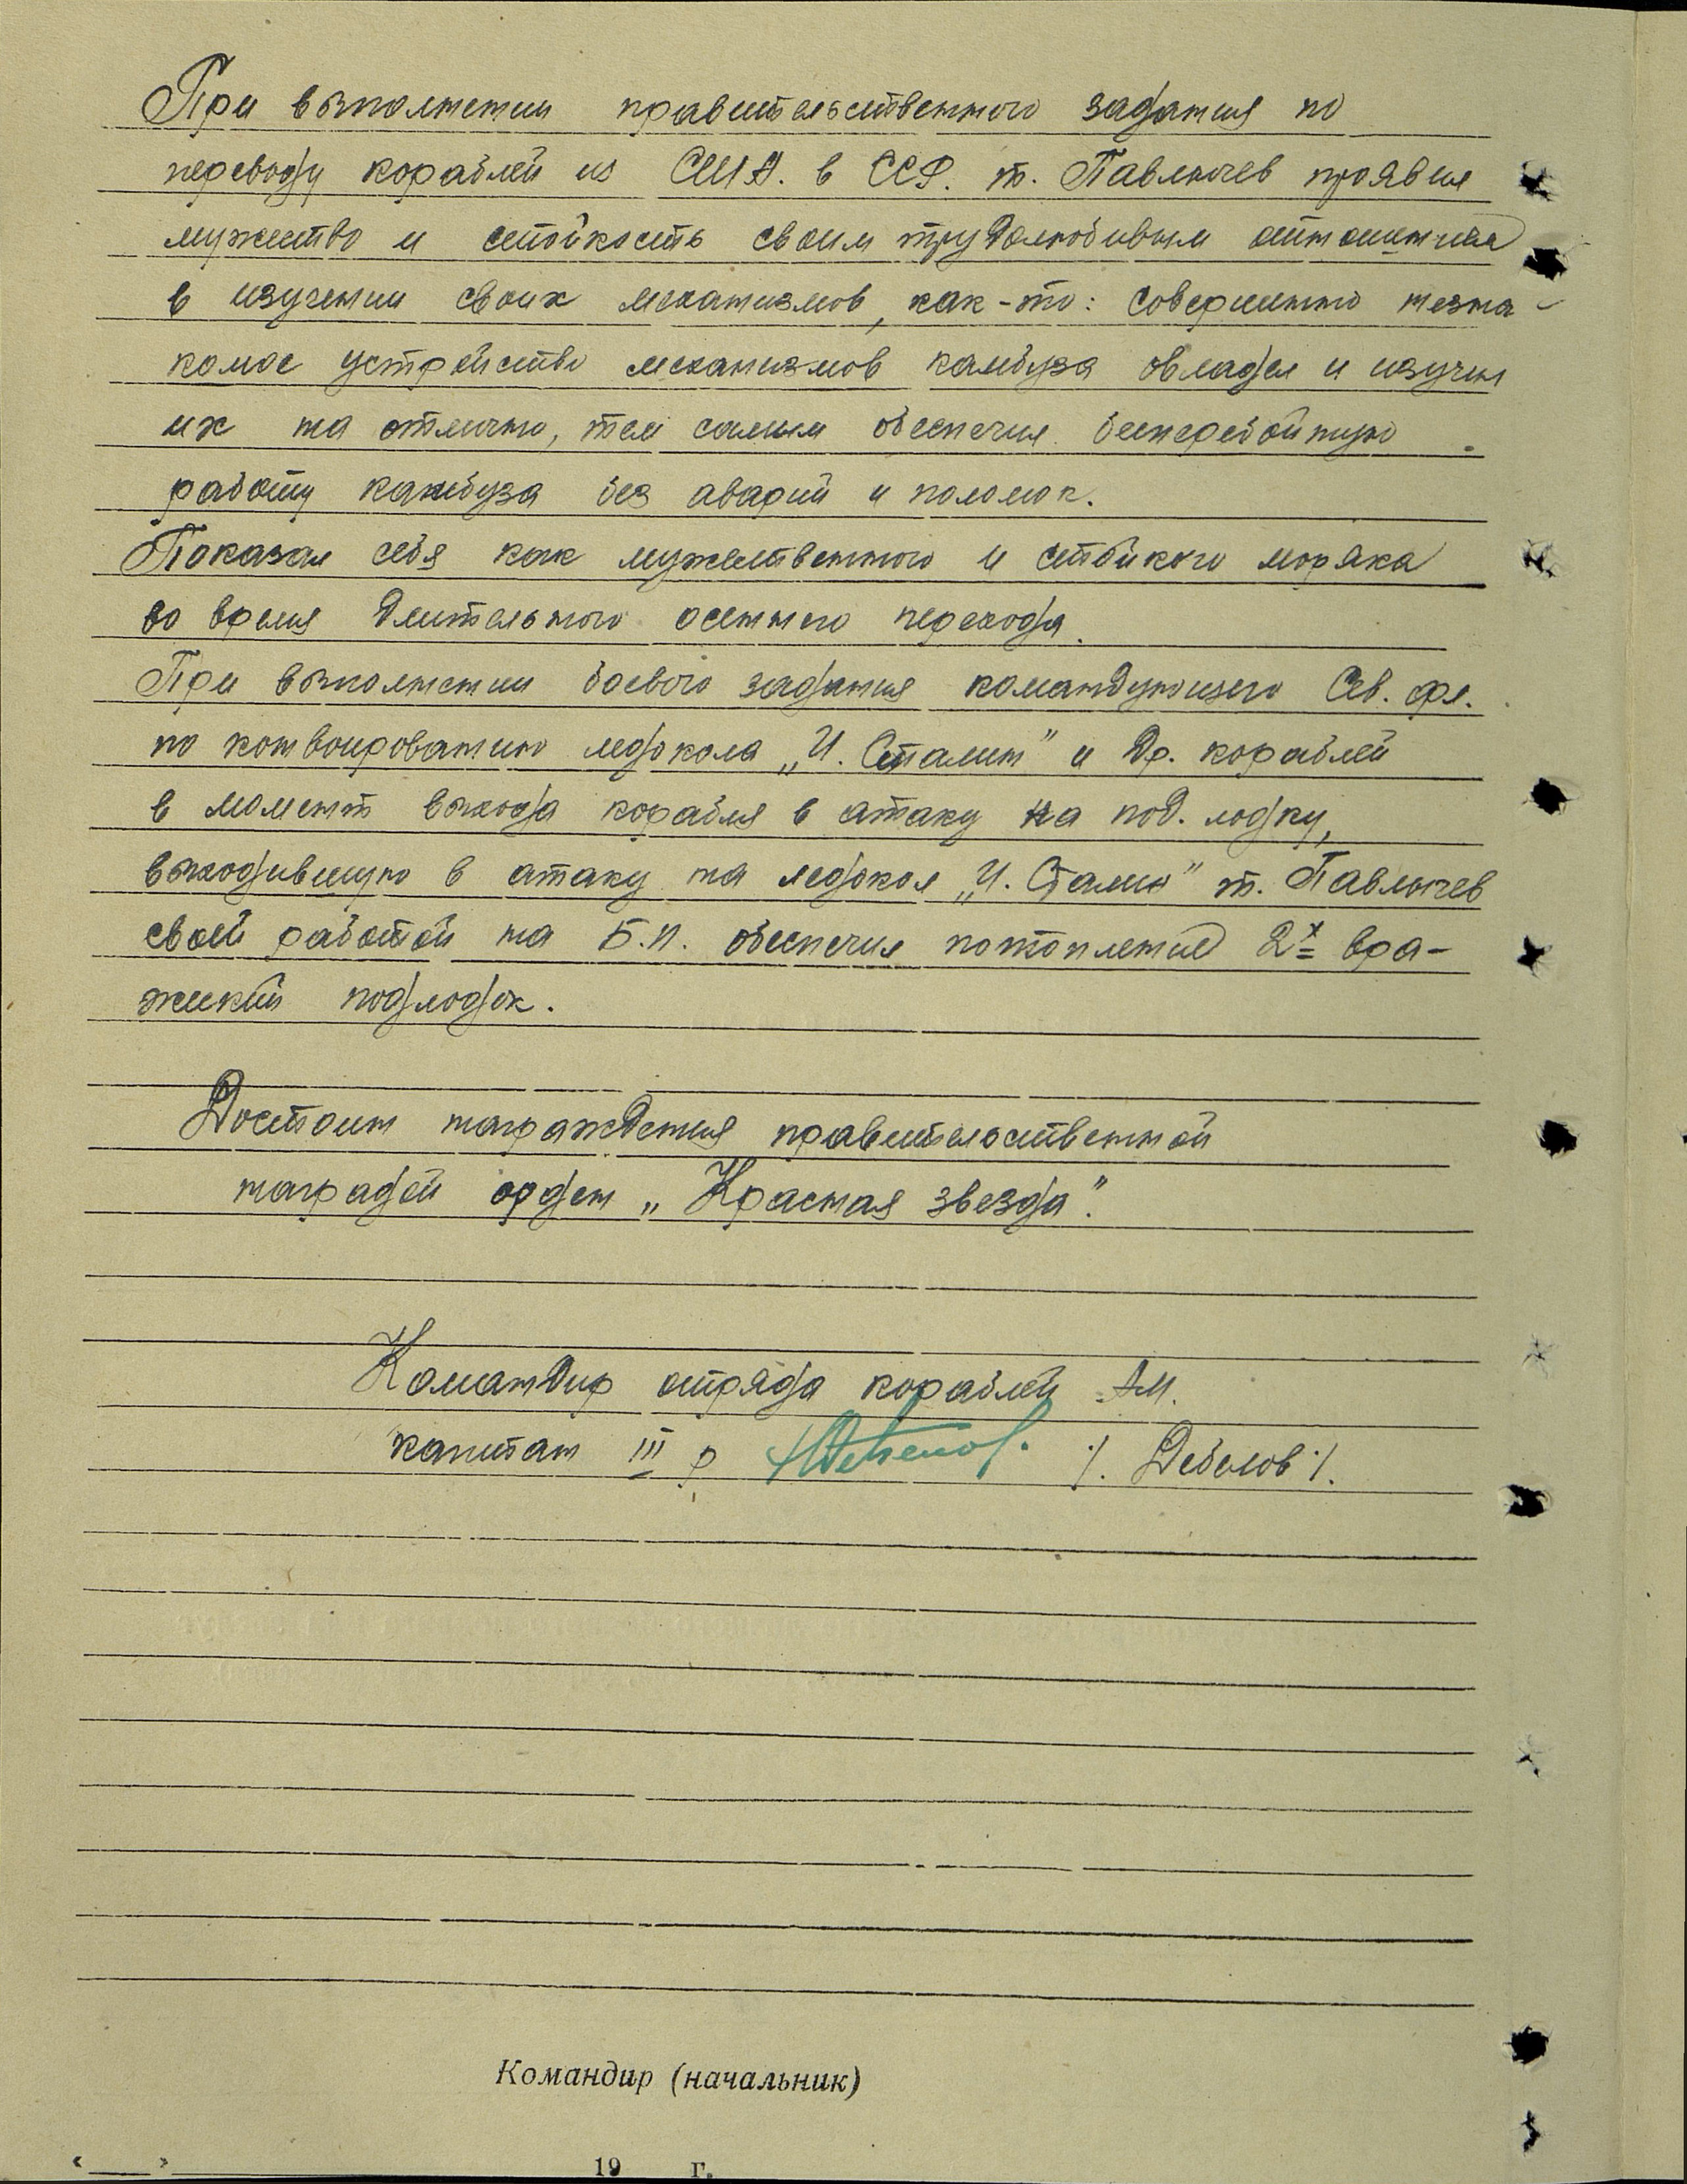 При выполнении правительственного задания по
переводу кораблей из США. в ССР. т. Павлычев проявил
мужество и стойкость своим трудолюбивым отношением
в изучении своих механизмов, как-то: совершенно незна-
комое устройство механизмов камбуза овладел и изучил
их на отлично, тем самым обеспечил бесперебойную
работу камбуза без аварий и поломок.
Показал себя как мужественного и стойкого моряка
во время длительного осеннего перехода.
При выполнении боевого задания командующего Сев. фл.
по конвоированию ледокола „И. Сталин" и др. кораблей
в момент выхода корабля в атаку на под. лодку,
выходившую в атаку на ледокол „И. Сталин" т. Павлычев
своей работой на Б.П. обеспечил потопление 2х вра-
жеский подлодок.
Достоин награждения правительственной
наградой орден „Красная звезда".
Командир отряда кораблей АМ.
капитан III р ./. Дебелов ./.
Командир (начальник)
« » 19 г.